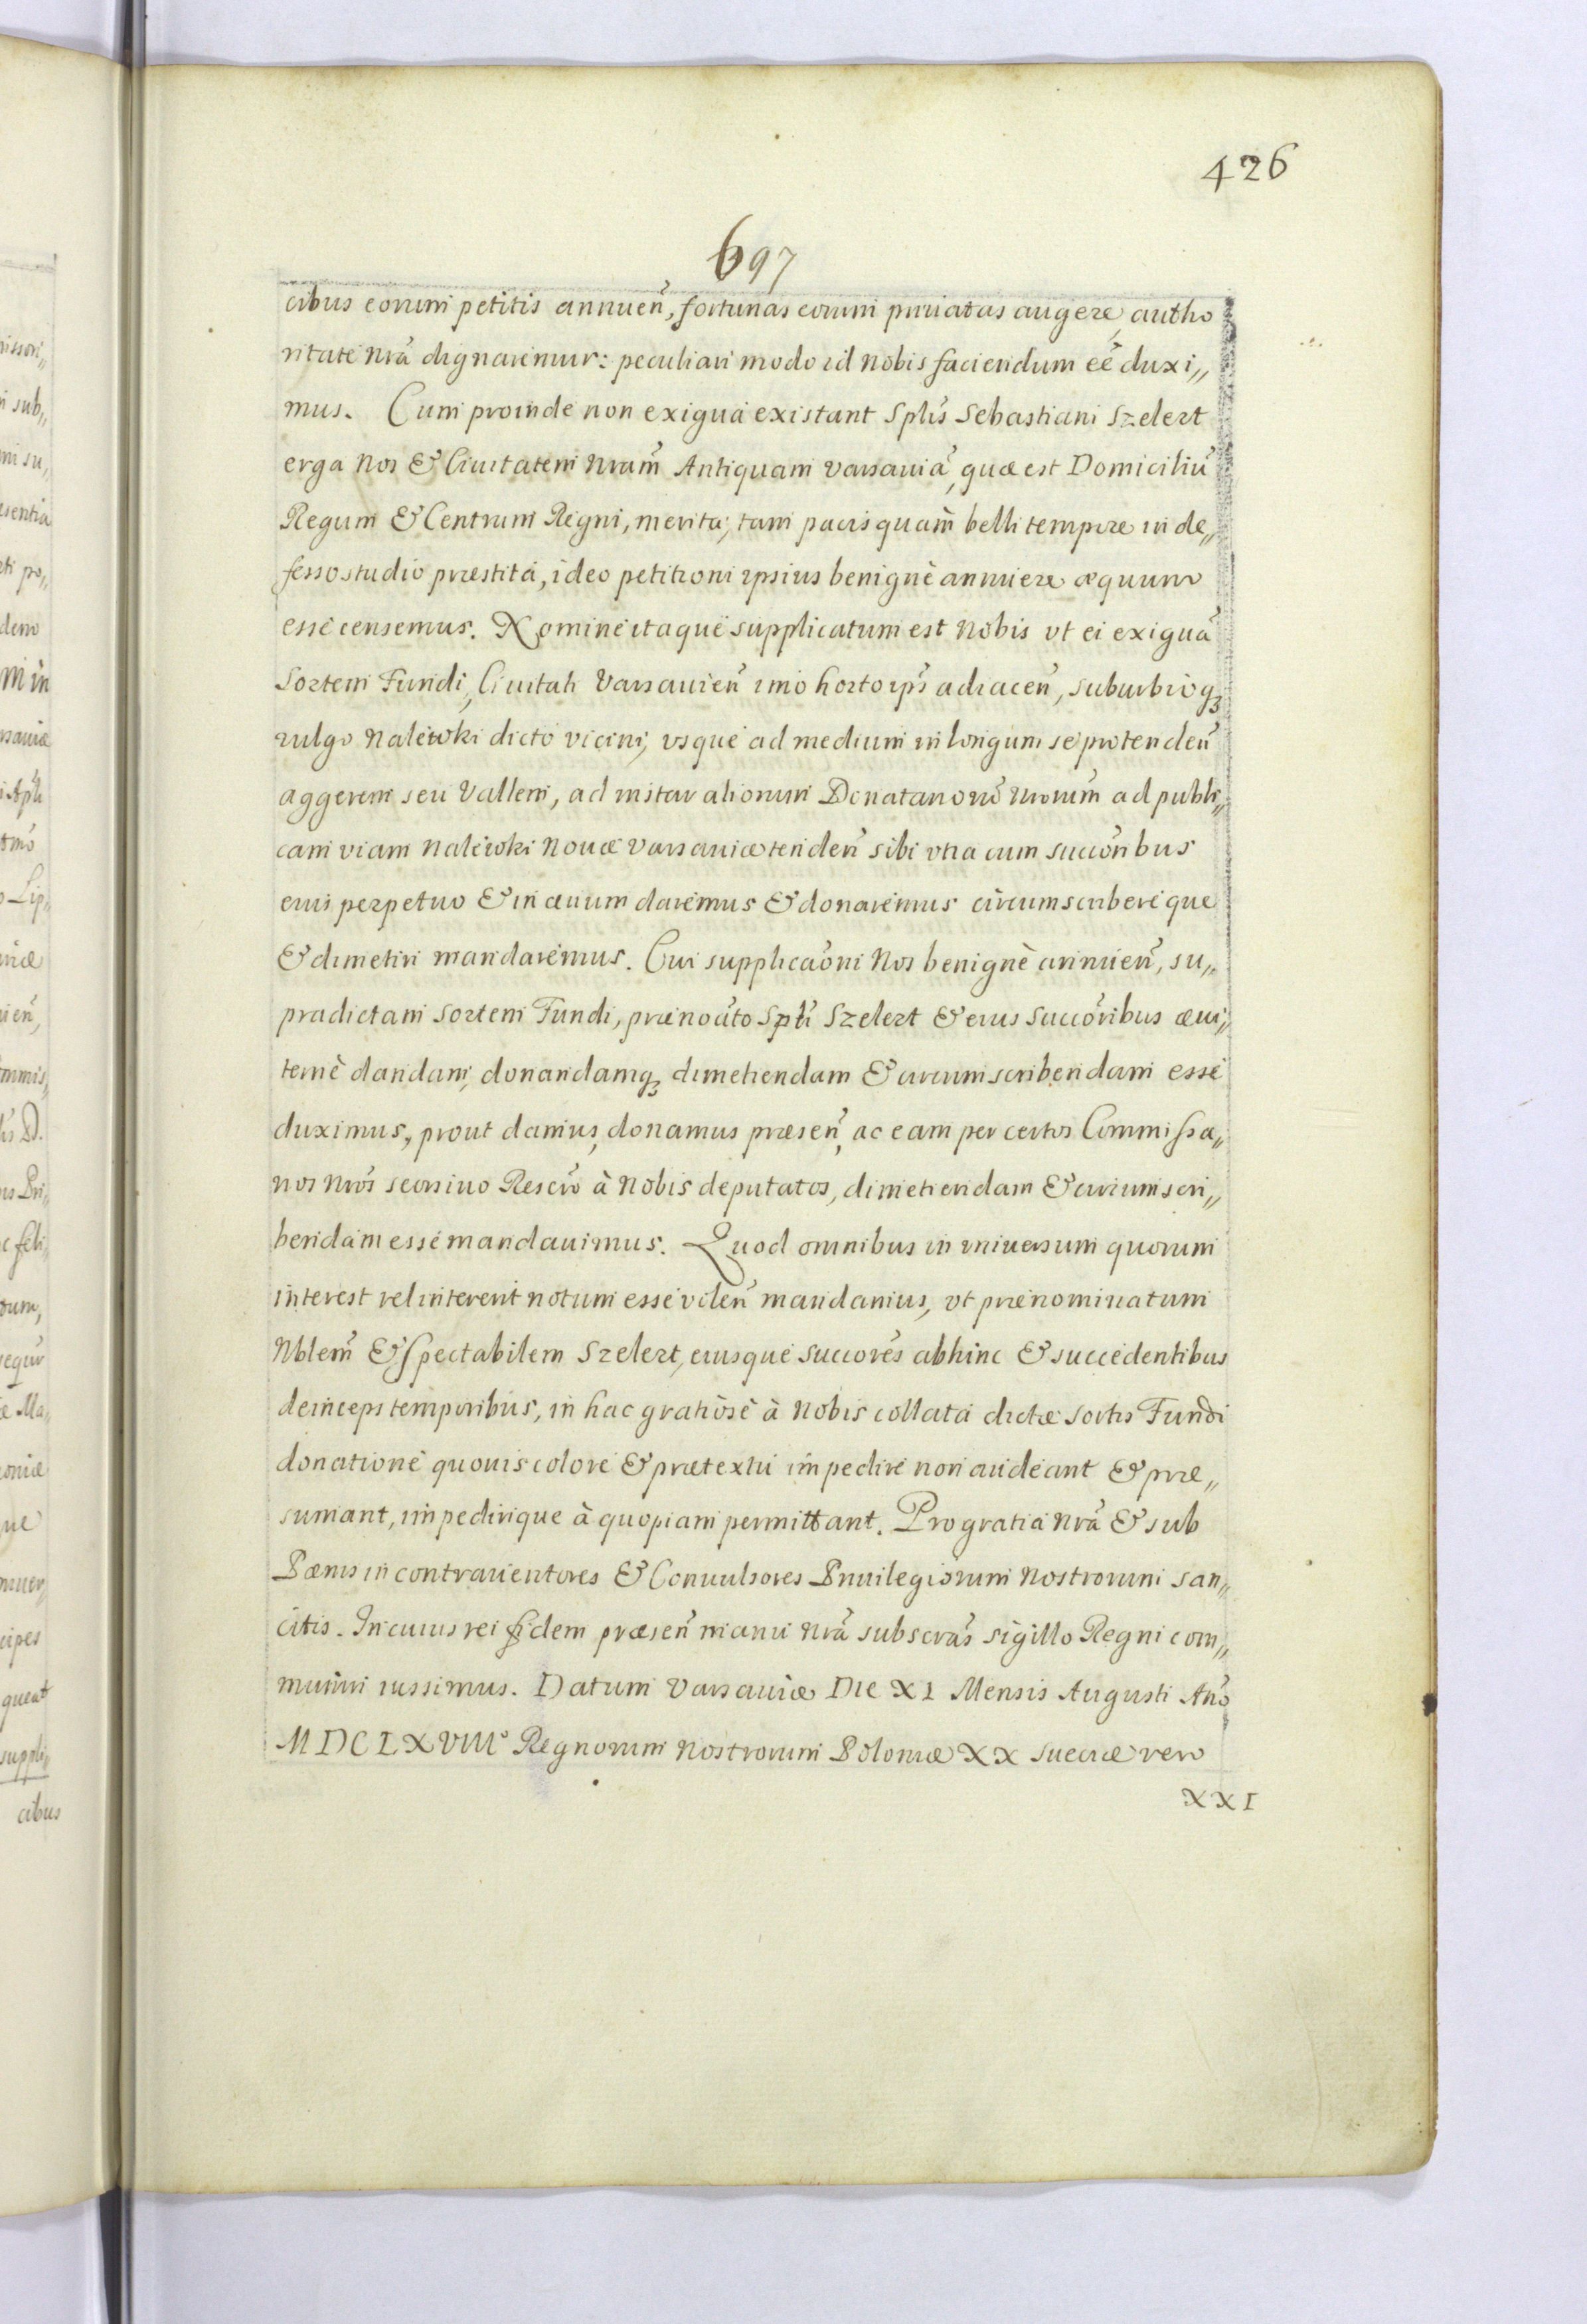 426
697
cibus eorum petitis annueñ, fortunas eorum priuatas augere, autho
ritate nrã dignaremur: peculiari modo id nobis faciendum eẽ duxi„
mus. Cum proinde non exigua existant Splis̃ Sebastiani Szelert
erga Nos & Ciuitatem Nram̃ Antiquam Varsauiã, quæ est Domiciliũ
Regum & Centrum Regni, merita, tam pacis quàm belli tempore in de„
fesso studio præstita, ideo petitioni ipsius benignè annuere æquum
esse censemus. Nomine itaque supplicatum est Nobis vt ei exiguã
Sortem Fundi, Ciuitati Varsauieñ imo horto ips̃ adiaceñ, suburbioq₃
vulgo Nalewki dicto vicini, vsque ad medium in longum se protendeñ
aggerem seu Vallem, ad instar aliorum Donatariorũ nrorum̃ ad publi„
cam viam Nalewki Nouæ Varsauiæ tendeñ sibi vna cum succor̃ibus
eius perpetuo & in æuum daremus & donaremus circumscribereque
& dimetiri mandaremus. Cui supplicaõni Nos benignè annueñ, su„
pradictam Sortem Fundi, prænoãto Spli̇̃ Szelert & eius succoribus̃ æui„
ternè dandam, donandamq₃ dimetiendam & circumscribendam esse
duximus, prout damus, donamus præseñ, ac eam per certos Commissa„
rios nros̃ seorsiuo Rescr̃o à Nobis deputatos, dimetiendam & circumscri„
bendam esse mandauimus. Quod omnibus in vniuersum quorum
interest vel intererit notum esse voleñ mandamus, vt prænominatum
Nblem̃ & Spectabilem Szelert, eiusque succores̃ abhinc & succedentibus
deinceps temporibus, in hac gratiosè à Nobis collata dictæ sortis Fundi
donatione quouis colore & prætextu impedire non audeant & præ„
sumant, impedirique à quopiam permittant. Pro gratia nrã & sub
Pænis in contrauentores & Conuulsores Priuilegiorum Nostrorum san„
citis. In cuius rei fidem præseñ manu nrã subscras̃ sigillo Regni com„
muniri iussimus. Datum Varsauiæ Die XI Mensis Augusti Anõ
MDCLXVIIIº Regnorum Nostrorum Poloniæ XX Sueciæ vero
XXI